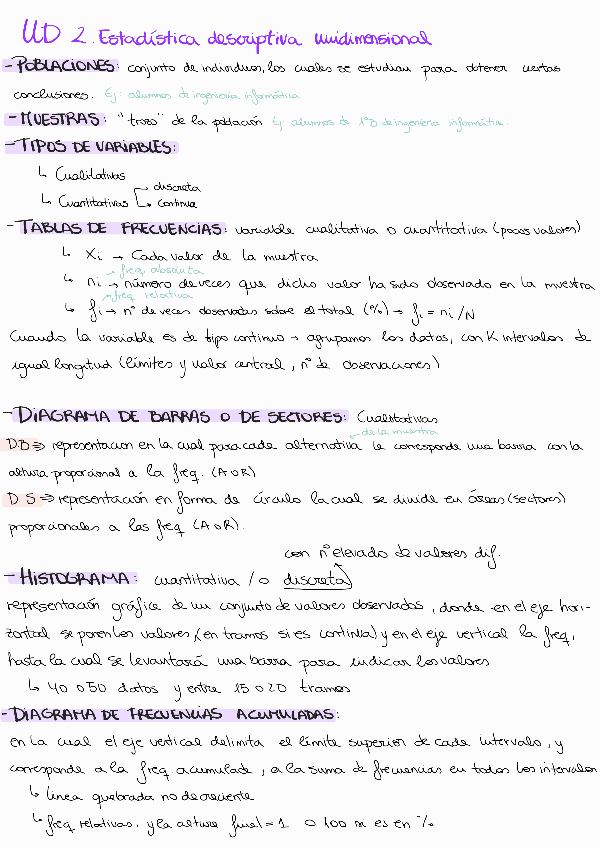 UD 2. Estadística descriptiva unidimensional
- POBLACIONES: conjunto de individuos, los cuales se estudian para obtener ciertas
conclusiones. Ej: alumnos de ingeniería informática
- MUESTRAS: "trozo" de la población Ej: alumnos de 1ºD de ingeniería informática.
- TIPOS DE VARIABLES:
↳ Cualitativas
↳ Cuantitativas → discreta
↳ continua
- TABLAS DE FRECUENCIAS: variable cualitativa o cuantitativa (pocos valores)
↳ Xi → Cada valor de la muestra
→ freq. absoluta
↳ ni → número de veces que dicho valor ha sido observado en la muestra
→ freq relativa
↳ fi → nº de veces observadas sobre el total (%) → fi = ni/N
Cuando la variable es de tipo continuo → agrupamos los datos, con K intervalos de
igual longitud (límites y valor central, nº de observaciones)
- DIAGRAMA DE BARRAS O DE SECTORES: Cualitativas
← de la muestra
DB ⇒ representacion en la cual para cada alternativa le corresponde una barra con la
altura proporcional a la freq. (A o R)
DS ⇒ representación en forma de círculo la cual se divide en áreas (sectores)
proporcionales a las freq (A o R).
con nº elevado de valores dif.
- HISTOGRAMA: cuantitativa / o discreta
representación gráfica de un conjunto de valores observados, donde en el eje hori-
zontal se ponen los valores (en tramos si es continua) y en el eje vertical la freq,
hasta la cual se levantará una barra para indicar los valores
↳ 40 o 50 datos y entre 15 o 20 tramos
- DIAGRAMA DE FRECUENCIAS ACUMULADAS:
en la cual el eje vertical delimita el límite superior de cada intervalo, y
corresponde a la freq acumulada, a la suma de frecuencias en todos los intervalos
↳ línea quebrada no decreciente
↳ freq relativas. y la altura final = 1 o 100 si es en %